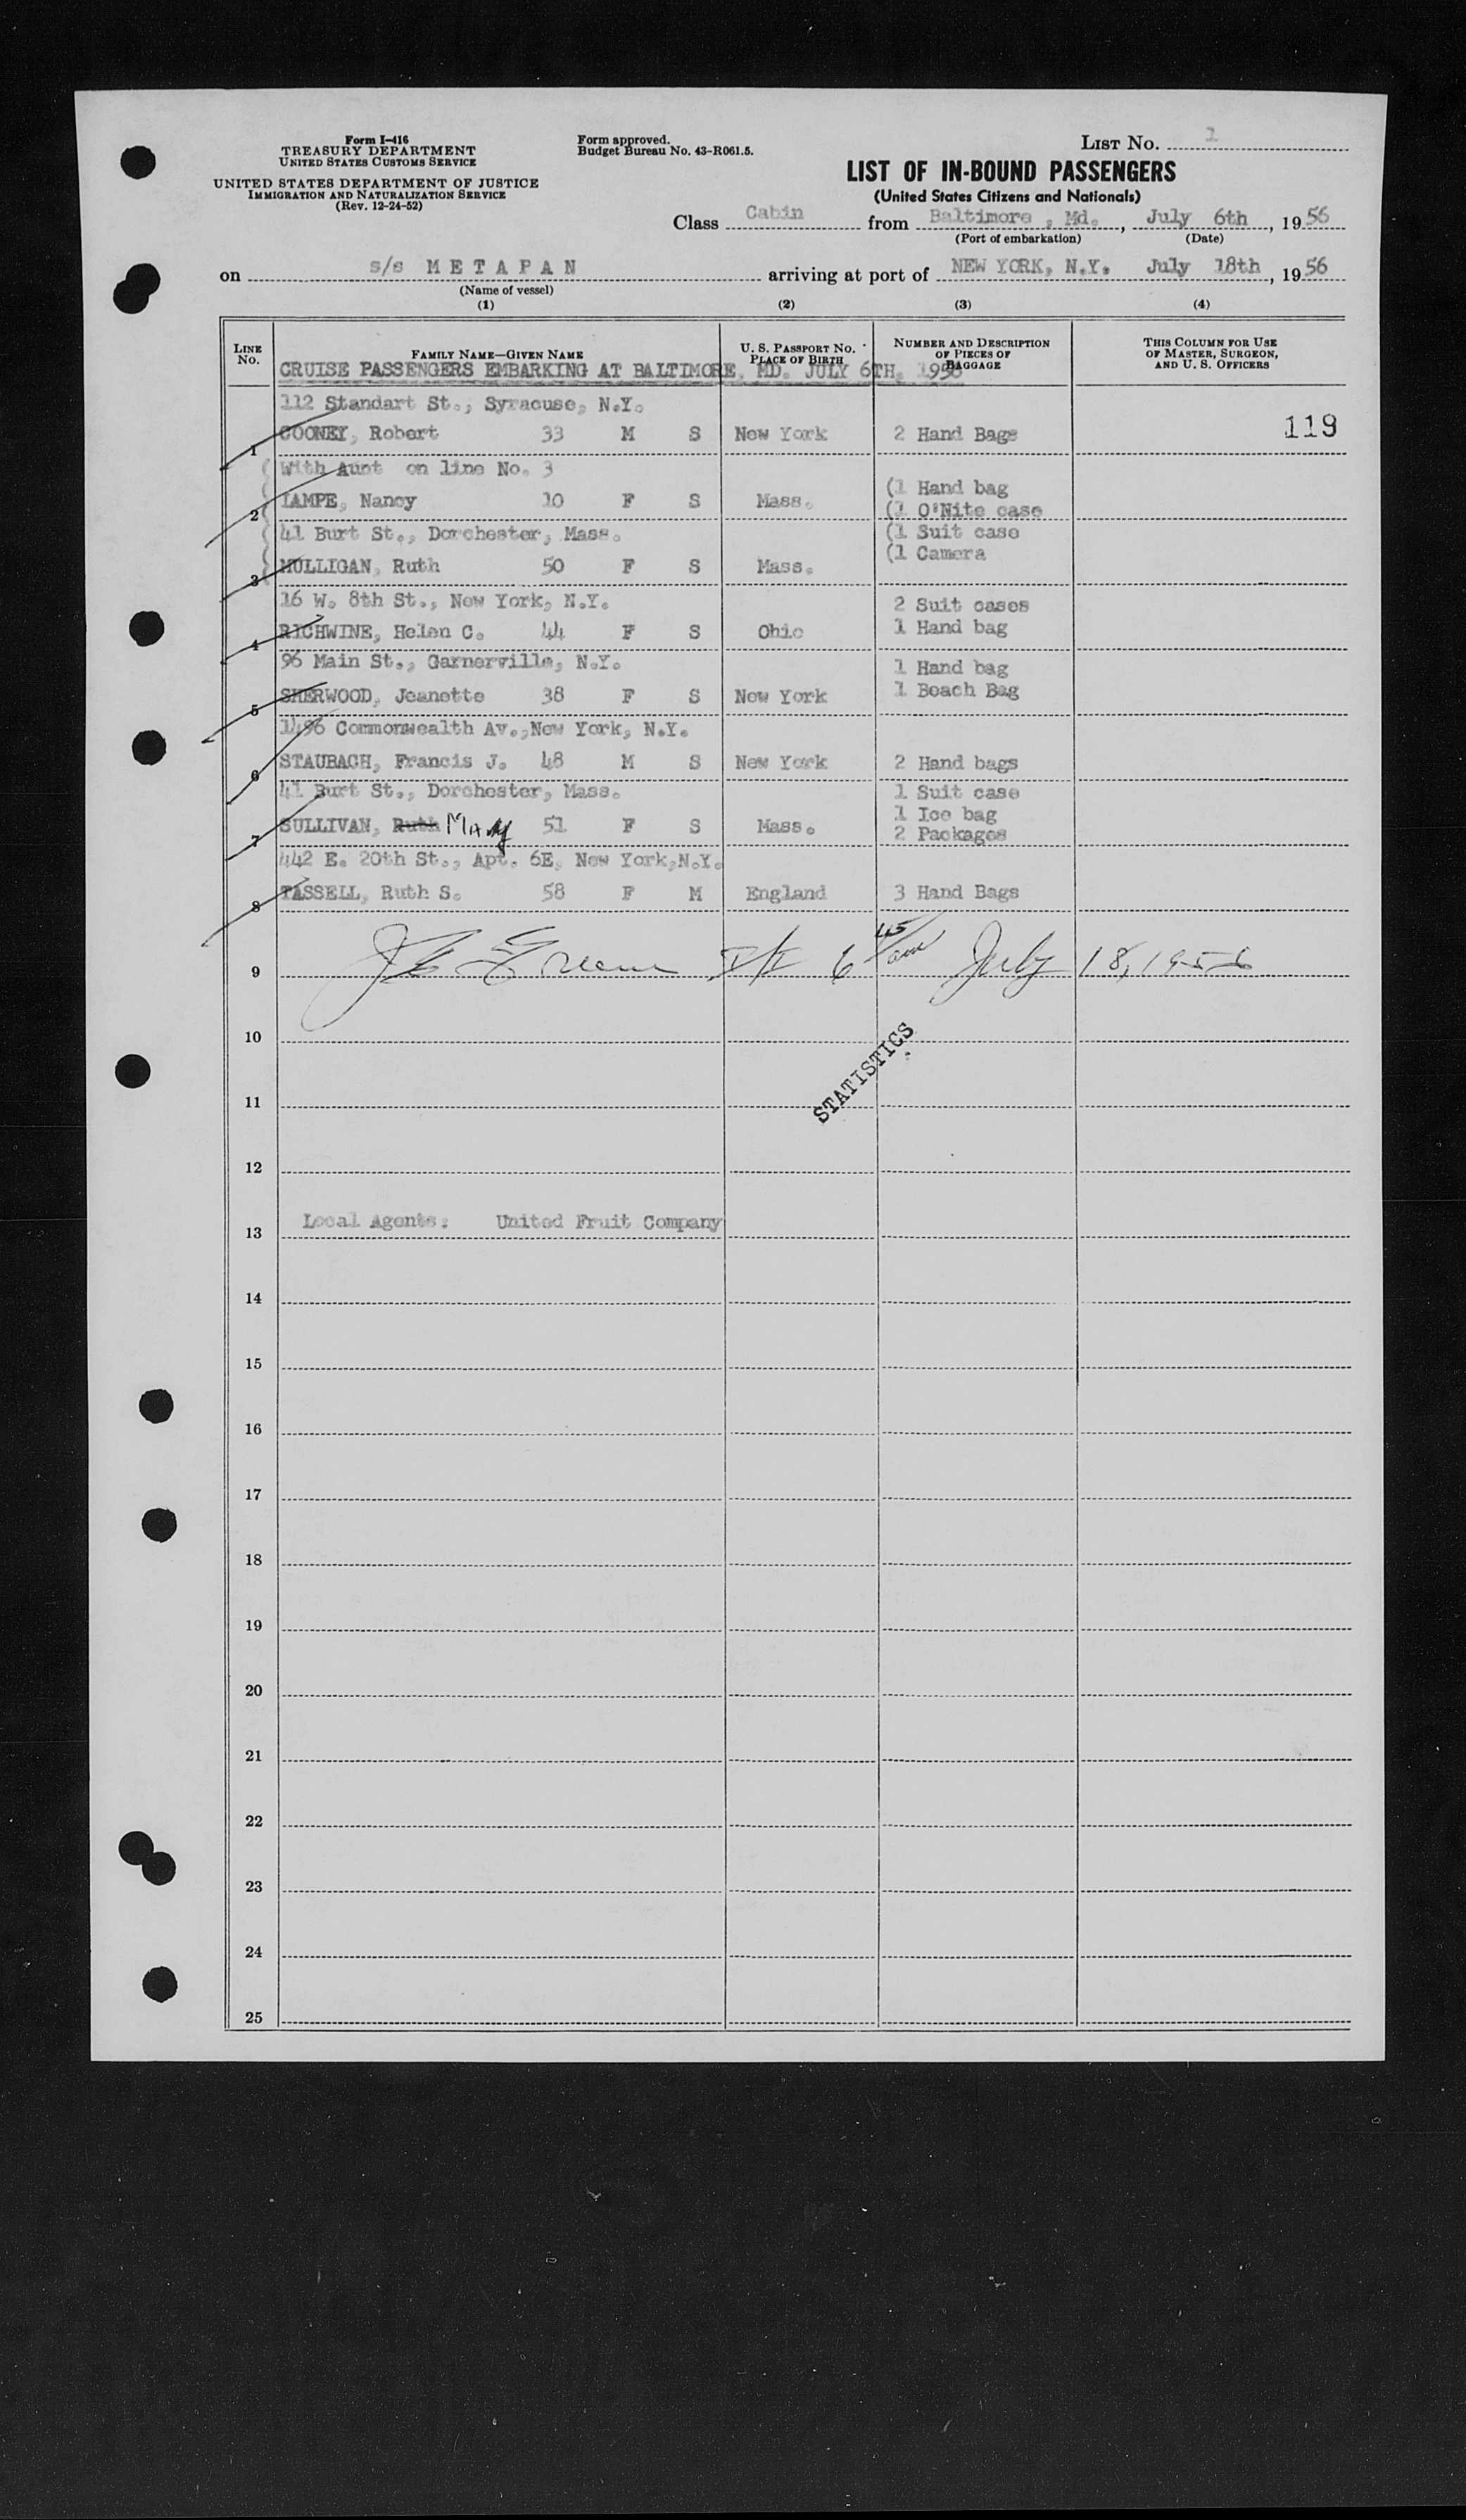 Form I-416
TREASURY DEPARTMENT
UNITED STATES CUSTOMS SERVICE
UNITED STATES DEPARTMENT OF JUSTICE
IMMIGRATION AND NATURALIZATION SERVICE
(Rev. 12-24-52)
Form approved.
Budget Bureau No. 43-R061.5.
LIST No. 1
LIST OF IN-BOUND PASSENGERS
(United States Citizens and Nationals)
Class Cabin from Baltimore , Md. , July 6th , 1956
(Port of embarkation) (Date)
on s/s M E T A P A N arriving at port of NEW YORK, N.Y. July 18th , 1956
(Name of vessel)
(1) (2) (3) (4)
LINE No. FAMILY NAME—GIVEN NAME U. S. PASSPORT No. PLACE OF BIRTH NUMBER AND DESCRIPTION OF PIECES OF BAGGAGE THIS COLUMN FOR USE OF MASTER, SURGEON, AND U. S. OFFICERS
CRUISE PASSENGERS EMBARKING AT BALTIMORE, MD. JULY 6TH, 1956
112 Standart St., Syracuse, N.Y.
1 COONEY, Robert 33 M S New York 2 Hand Bags 119
With Aunt on line No. 3
2 LAMPE, Nancy 10 F S Mass. (1 Hand bag
(1 O'Nite case
41 Burt St., Dorchester, Mass. (1 Suit case
(1 Camera
3 MULLIGAN, Ruth 50 F S Mass.
16 W. 8th St., New York, N.Y. 2 Suit cases
4 RICHWINE, Helen C. 44 F S Ohio 1 Hand bag
96 Main St., Garnerville, N.Y. 1 Hand bag
5 SHERWOOD, Jeanette 38 F S New York 1 Beach Bag
1496 Commonwealth Av.,New York, N.Y.
6 STAUBACH, Francis J. 48 M S New York 2 Hand bags
41 Burt St., Dorchester, Mass. 1 Suit case
1 Ice bag
7 SULLIVAN, Ruth Mary 51 F S Mass. 2 Packages
442 E. 20th St., Apt. 6E, New York,N.Y.
8 TASSELL, Ruth S. 58 F M England 3 Hand Bags
9 Greene 6 45 am July 18, 1956
10
STATISTICS
11
12
13 Local Agents: United Fruit Company
14
15
16
17
18
19
20
21
22
23
24
25